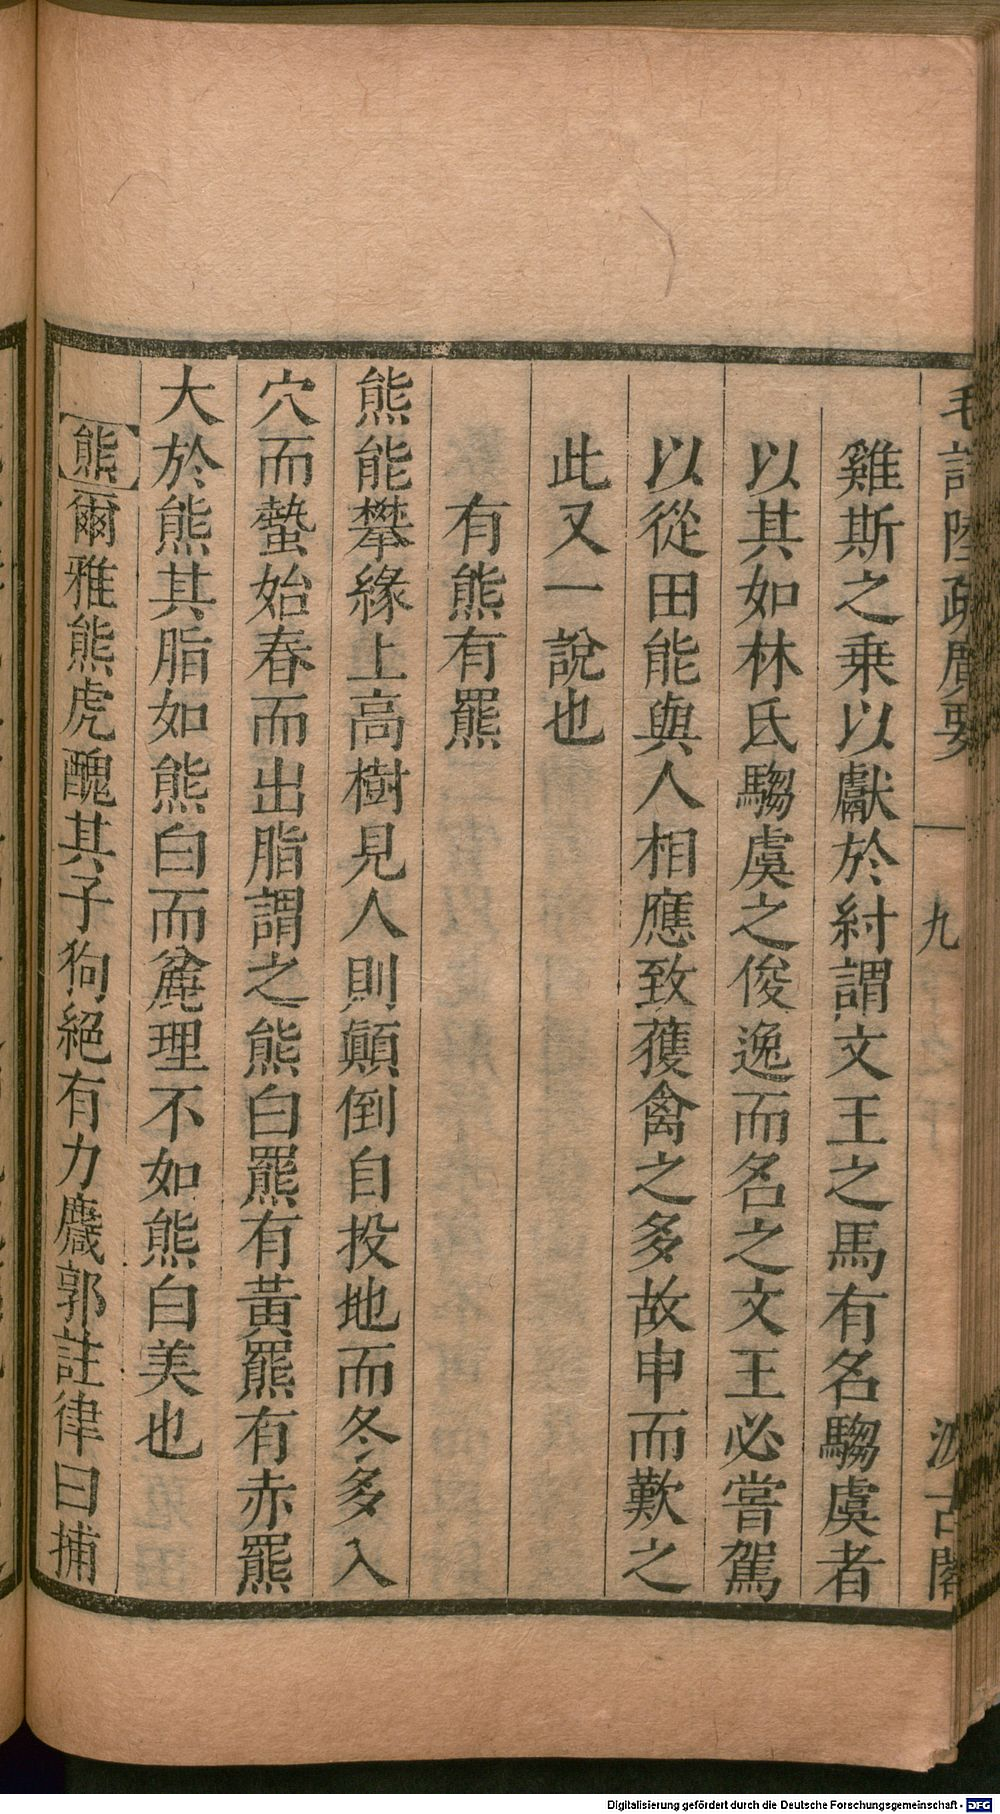 毛詩陸疏廣要
九
汲古閣
雞斯之乗以獻於紂謂文王之馬有名騶虞者
以其如林氏騶虞之俊逸而名之文王必嘗駕
以從田能與人相應致獲禽之多故申而歎之
此又一說也
有熊有羆
熊能攀緣上高樹見人則顛倒自投地而冬多入
穴而蟄始春而出脂謂之熊白羆有黃羆有赤羆
大於熊其脂如熊白而麄理不如熊白美也
熊爾雅熊虎醜其子狗絕有力麙郭註律曰捕
Digitalisierung gefördert durch die Deutsche Forschungsgemeinschaft - DFG